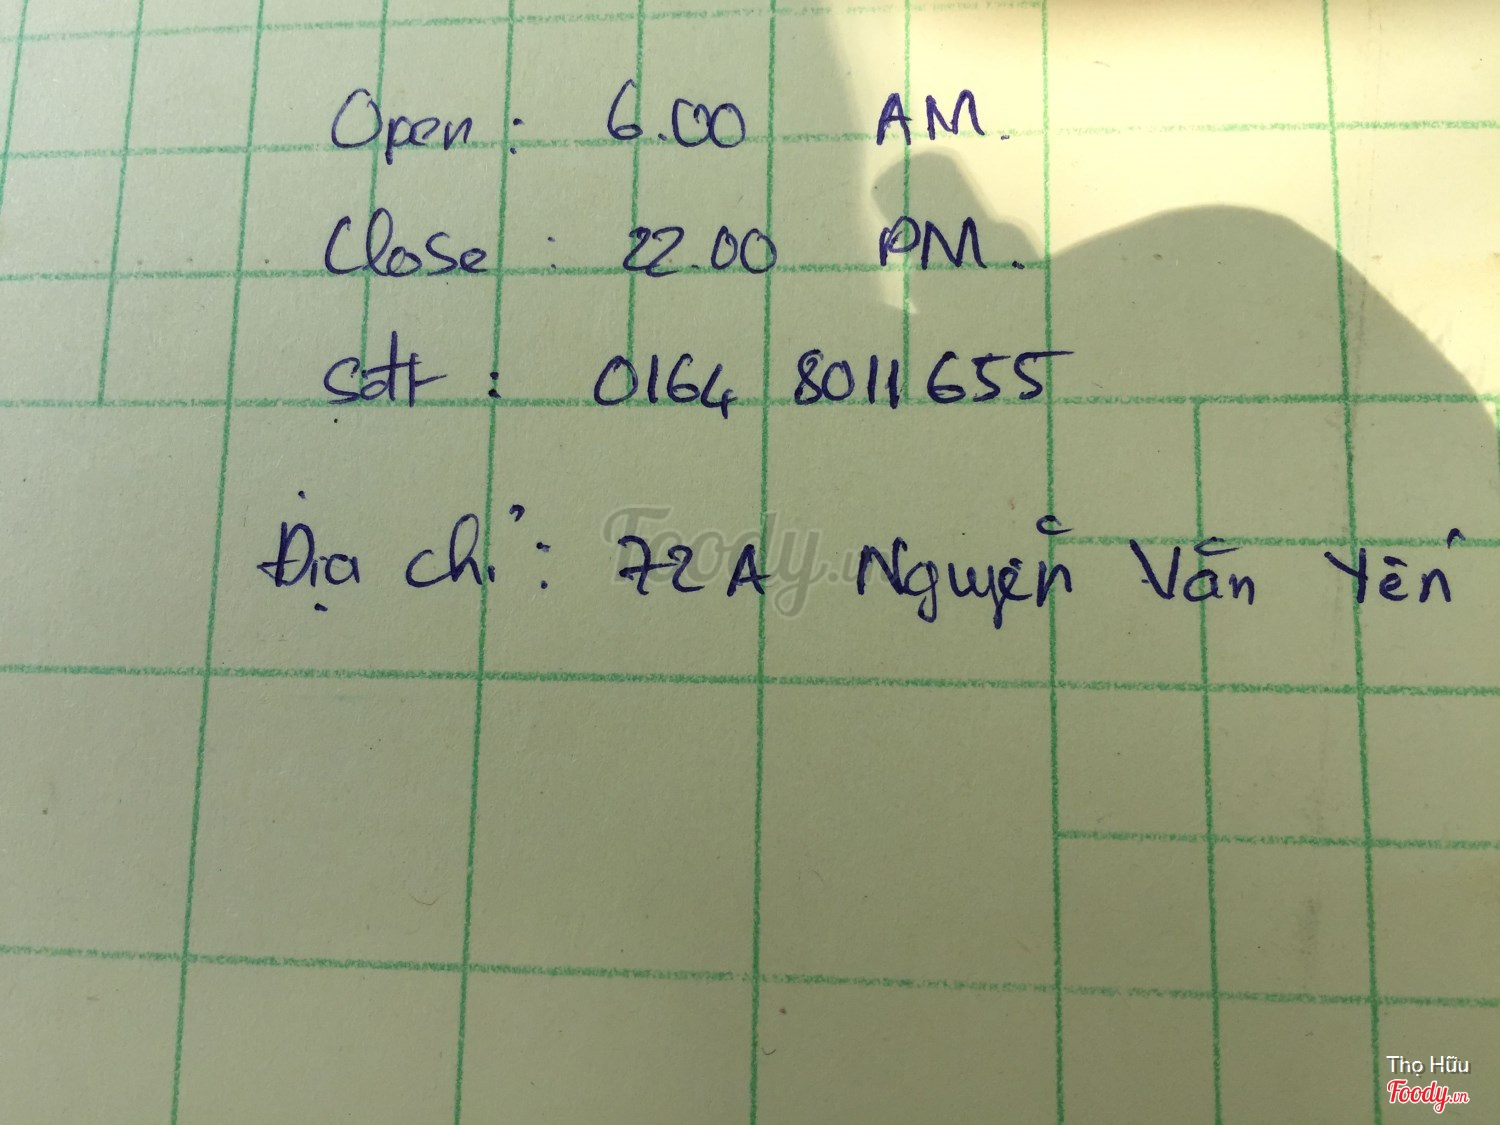 Open : 6.00 AM.
Close : 22.00 PM.
Sđt : 0164 8011 655
Địa chỉ : 72A Nguyễn Văn Yến
Foody.vn
Thọ Hữu
Foody.vn